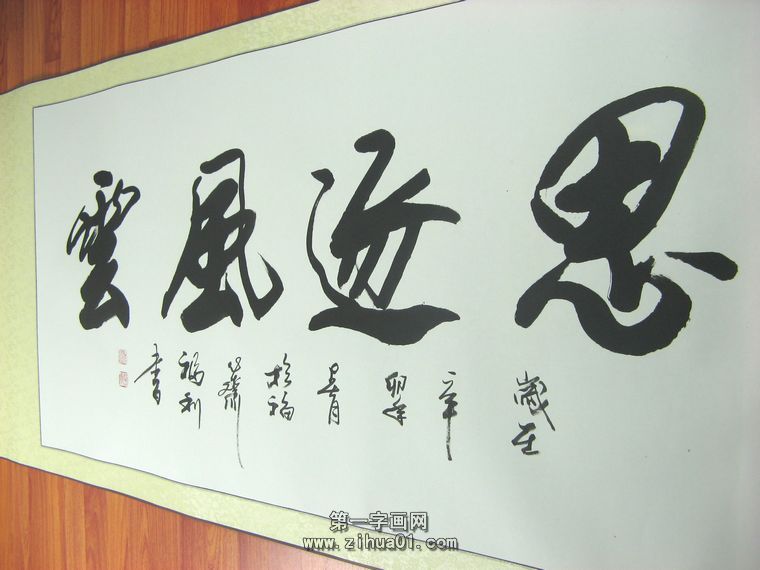 思逐風雲
歲在
辛
卯年
月
於福
齋
福利
書
第一字画网
www.zihua01.com